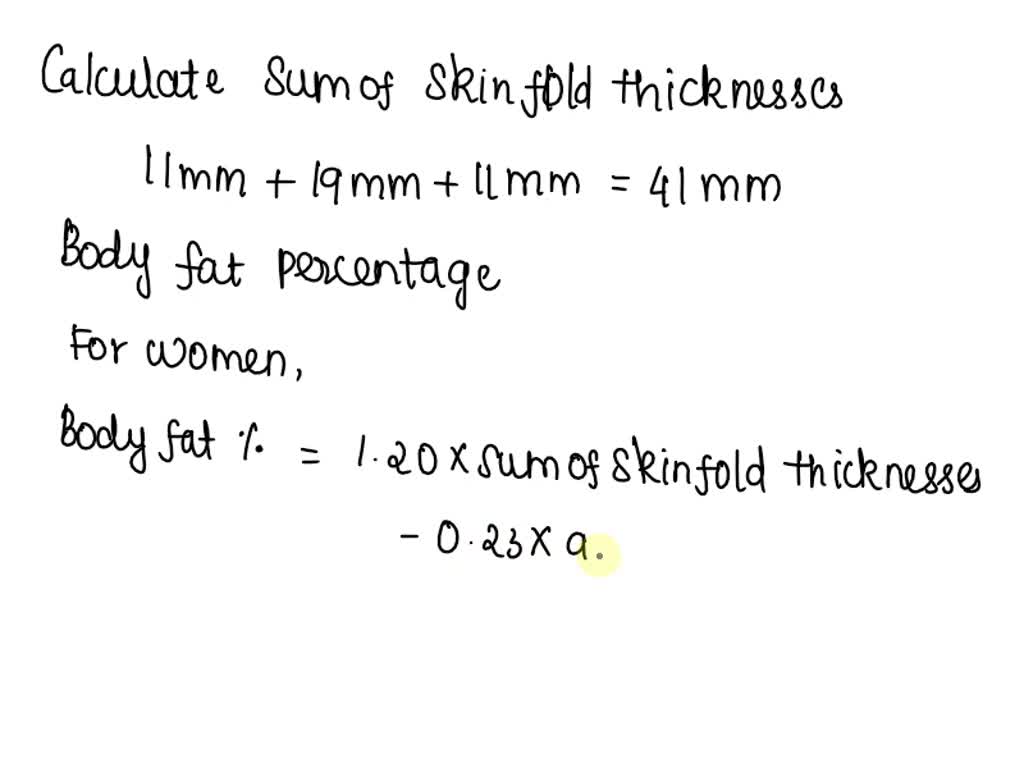 Calculate Sum of Skinfold thicknesses
11mm + 19mm + 11mm = 41mm
Body fat percentage
For women,
Body fat % = 1.20 x sum of skinfold thicknesses
- 0.23 x a.